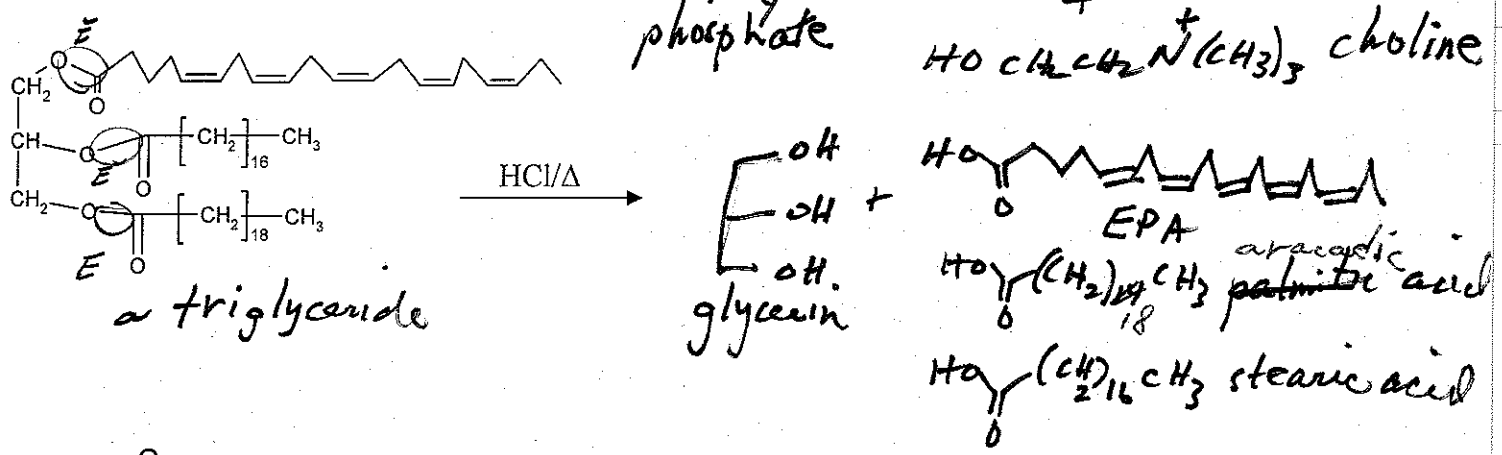 phosphate
+
HO CH2CH2N+(CH3)3 choline
E
O
CH2
O
CH
O
[CH2]16 CH3
E
O
CH2
O
[CH2]18 CH3
E
O
a triglyceride
HCl/Δ
OH
OH
OH.
glycerin
+
HO
O
EPA
HO
O
(CH2)18 CH3 aracadic acid
HO
O
(CH2)16 CH3 stearic acid
O